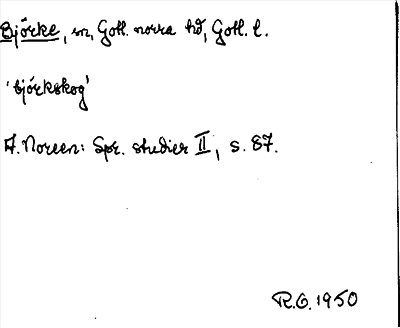 Björke, sn, Gotl. norra hd, Gotl. l.
'björkskog'
A. Noreen: Spr. studier II, s. 87.
R.O. 1950